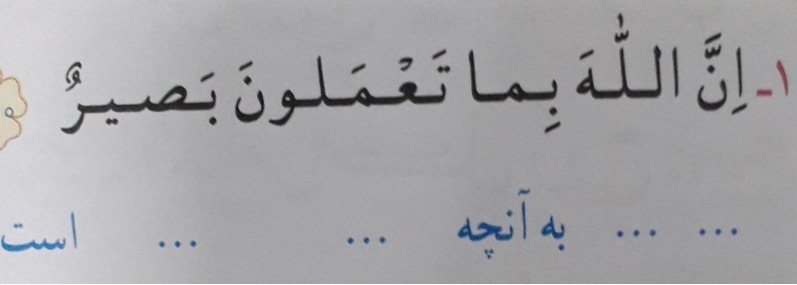 ۱ـ اِنَّ اللّٰهَ بِما تَعْمَلونَ بَصیرٌ
... ... به آنچه ... ... است